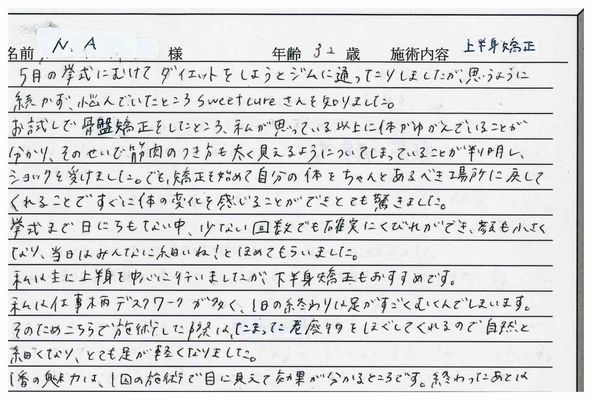 名前 N.A 様 年齢 32 歳 施術内容 上半身矯正
5月の挙式にむけて ダイエットをしようとジムに通ったりしましたが、思うように
続かず、悩んでいたところ sweetcureさんを知りました。
お試しで骨盤矯正をしたところ、私が思っている以上に体がゆがんでいることが
分かり、そのせいで筋肉のつき方も太く見えるようについてしまっていることが判明し、
ショックを受けました。でも、矯正を始めて自分の体をちゃんとあるべき場所に戻して
くれることですぐに体の変化を感じることができとても驚きました。
挙式まで日にちもない中、少ない回数でも確実にくびれができ、顔も小さく
なり、当日はみんなに細いね!とほめてもらいました。
私は主に上半身を中心に行いましたが、下半身矯正もおすすめです。
私は仕事柄デスクワークが多く、1日の終わりは足がすごくむくんでしまいます。
そのためこちらで施術した際は、たまった老廃物をほぐしてくれるので自然と
細くなり、とても足が軽くなりました。
1番の魅力は、1回の施術で目に見えて効果が分かるところです。終わったあとは